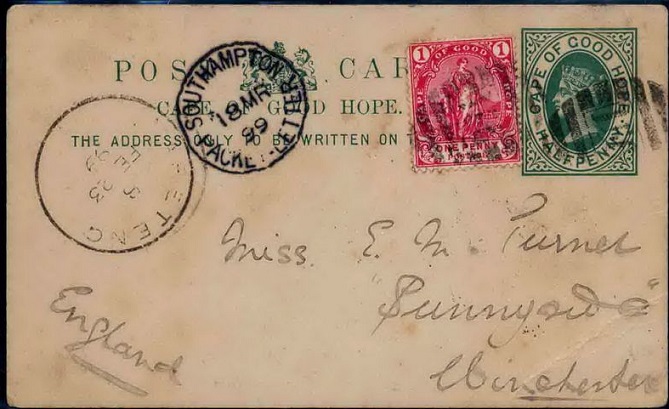 POST CARD
CAPE OF GOOD HOPE.
THE ADDRESS ONLY TO BE WRITTEN ON
SOUTHAMPTON PACKET-LETTER
18 MR
99
1 1
OF GOOD
ONE PENNY
CAPE OF GOOD HOPE
HALFPENNY
TETENG
FE
23
99
Miss. E. M. Turner
"Sunnyside"
Winchester
England